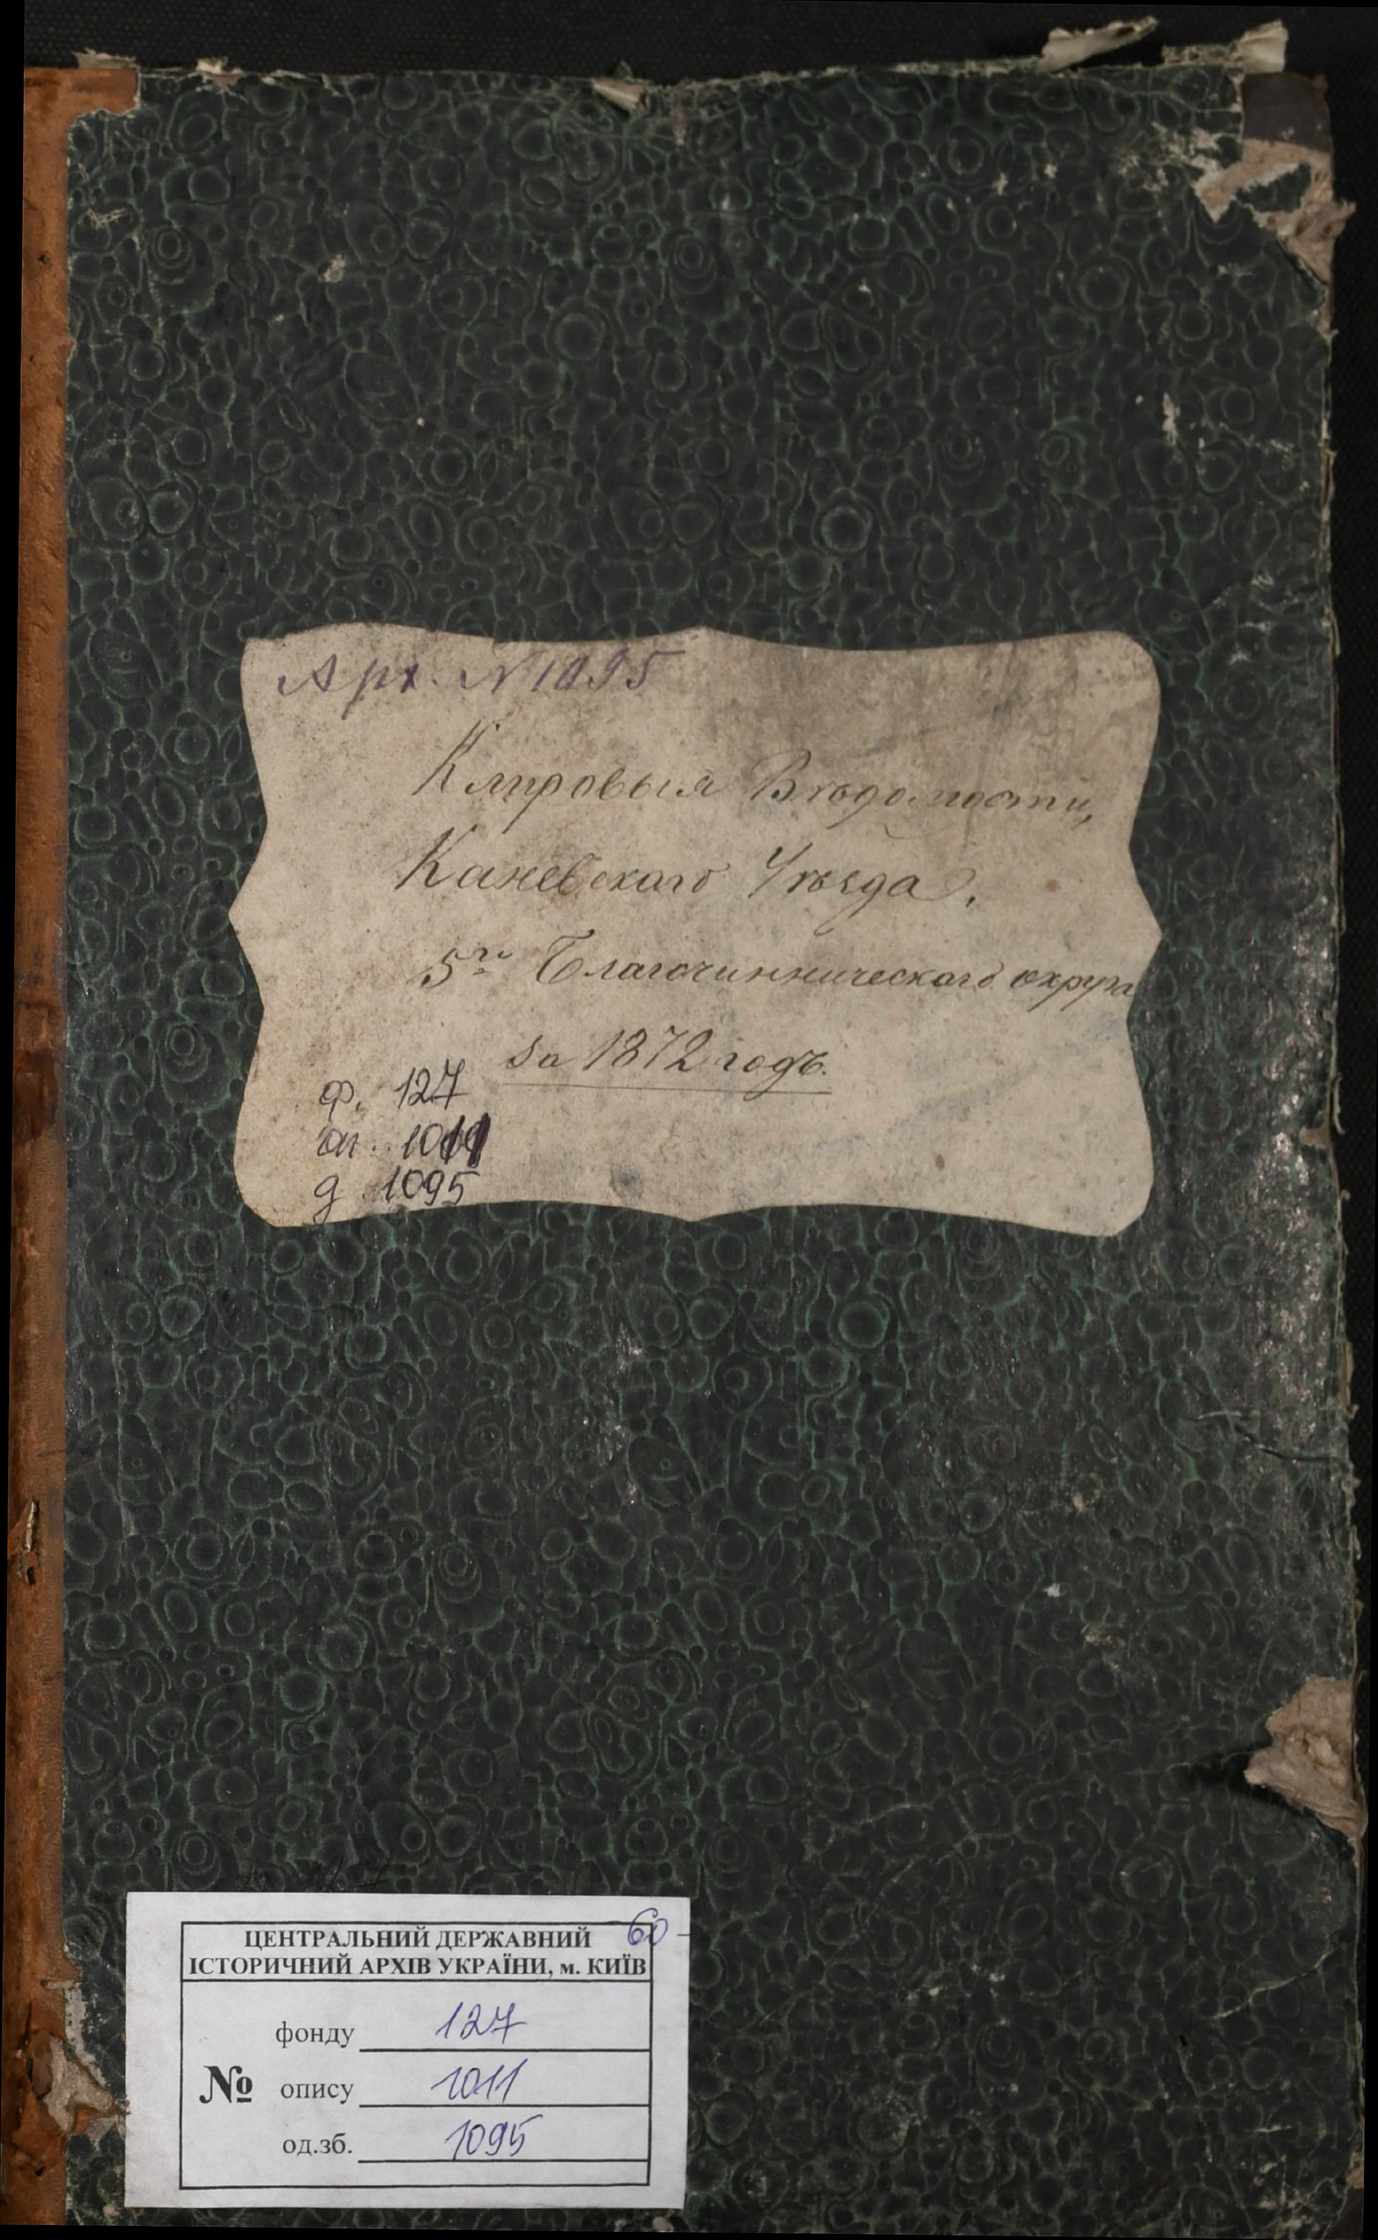 Арх. №1095
Клировыя Вѣдомости,
Каневскаго Уѣзда.
5го Благочинническаго округа
за 1872 годъ.
ф. 127
оп. 1011
д. 1095
60
ЦЕНТРАЛЬНИЙ ДЕРЖАВНИЙ
ІСТОРИЧНИЙ АРХІВ УКРАЇНИ, м. КИЇВ
фонду 127
№ опису 1011
од.зб. 1095